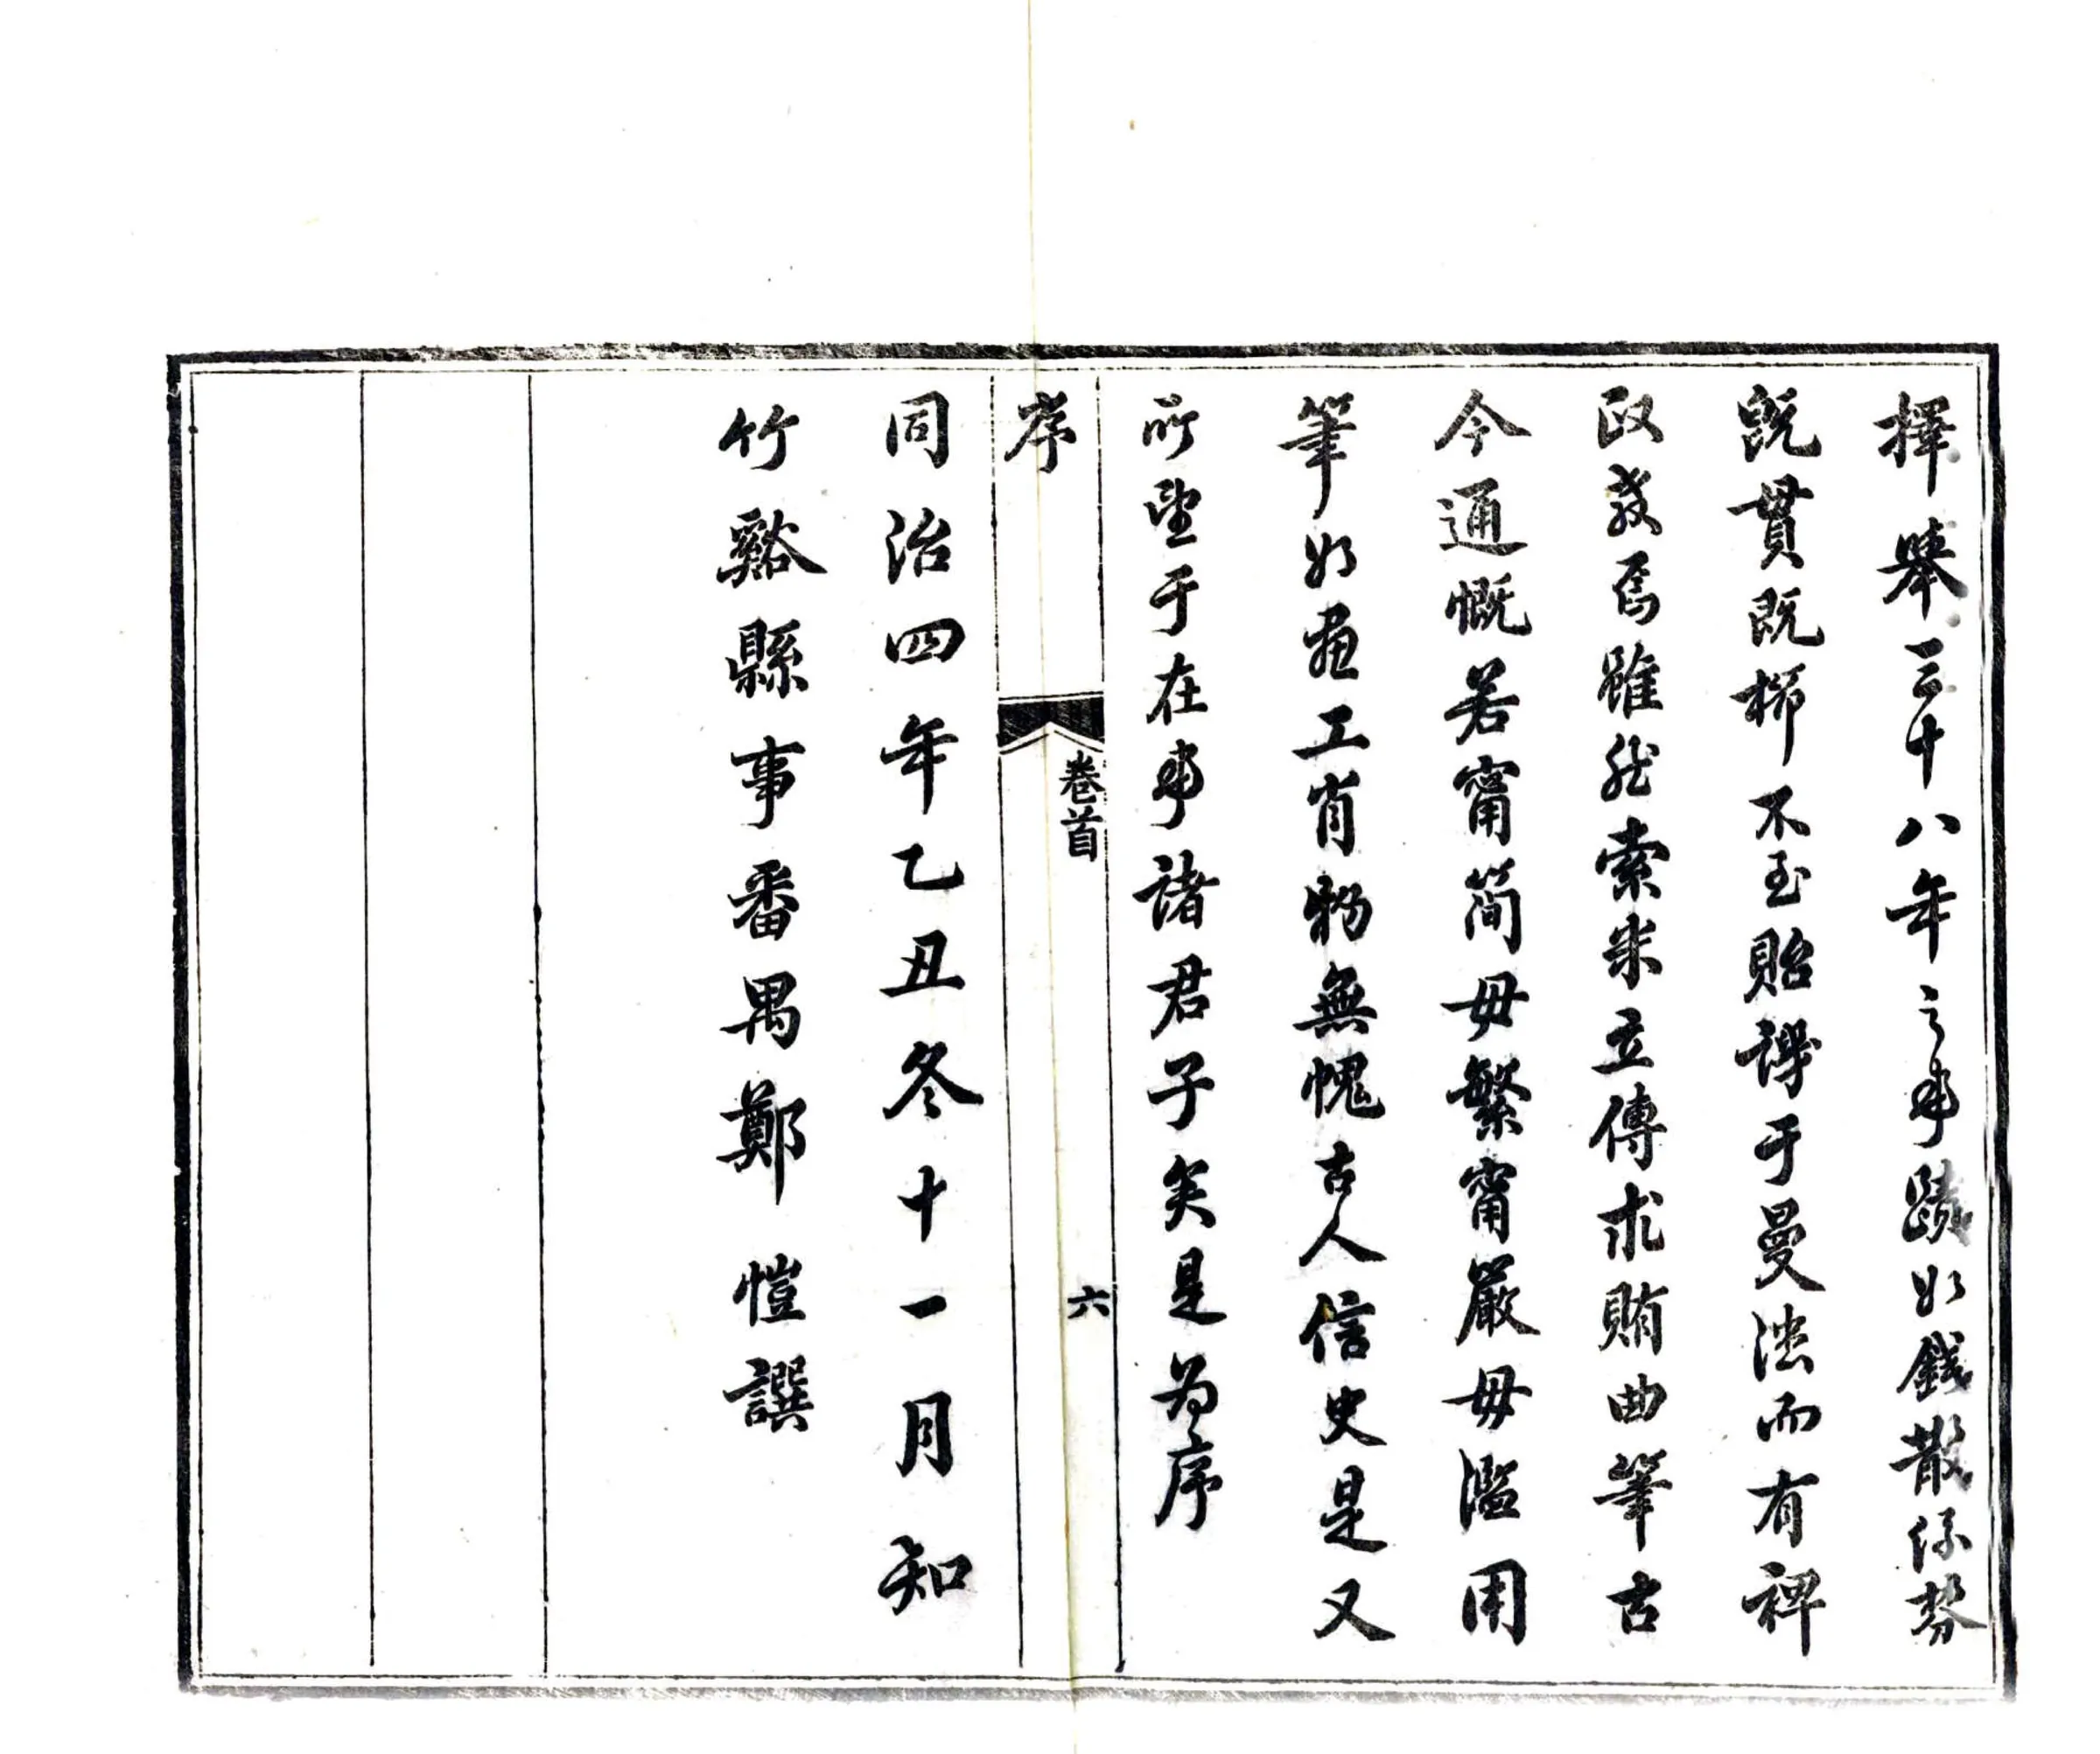 擇舉三十八年之事蹟如錢散係棼
既貫既櫛不至貽譏于曼漶而有裨
政教焉雖然索米立傳求賄曲筆古
今通慨若甯簡毋繁甯嚴毋濫用
筆如畫工肖物無愧古人信史是又
所望于在事諸君子矣是為序
序
卷首
六
同治四年乙丑冬十一月知
竹谿縣事番禺鄭愷譔